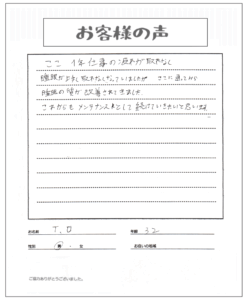 お客様の声
ここ1年仕事の疲れが取れなく
睡眠が上手く取れなくなっていましたが ここに通ってから
睡眠の質が改善されてきました
これからもメンテナンスとして続けていきたいと思います
お名前 T.O 年齢 32
性別 男・女 お住いの地域
ご協力ありがとうございました。